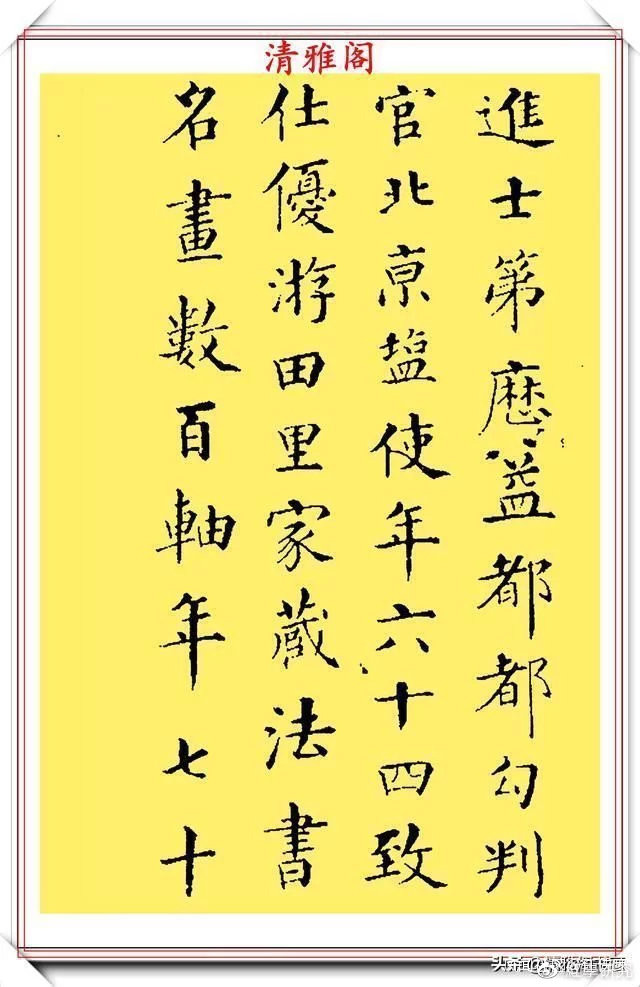 清雅阁
進士第歷益都都勾判
官北京塩使年六十四致
仕優游田里家蔵法書
名畫數百軸年七十